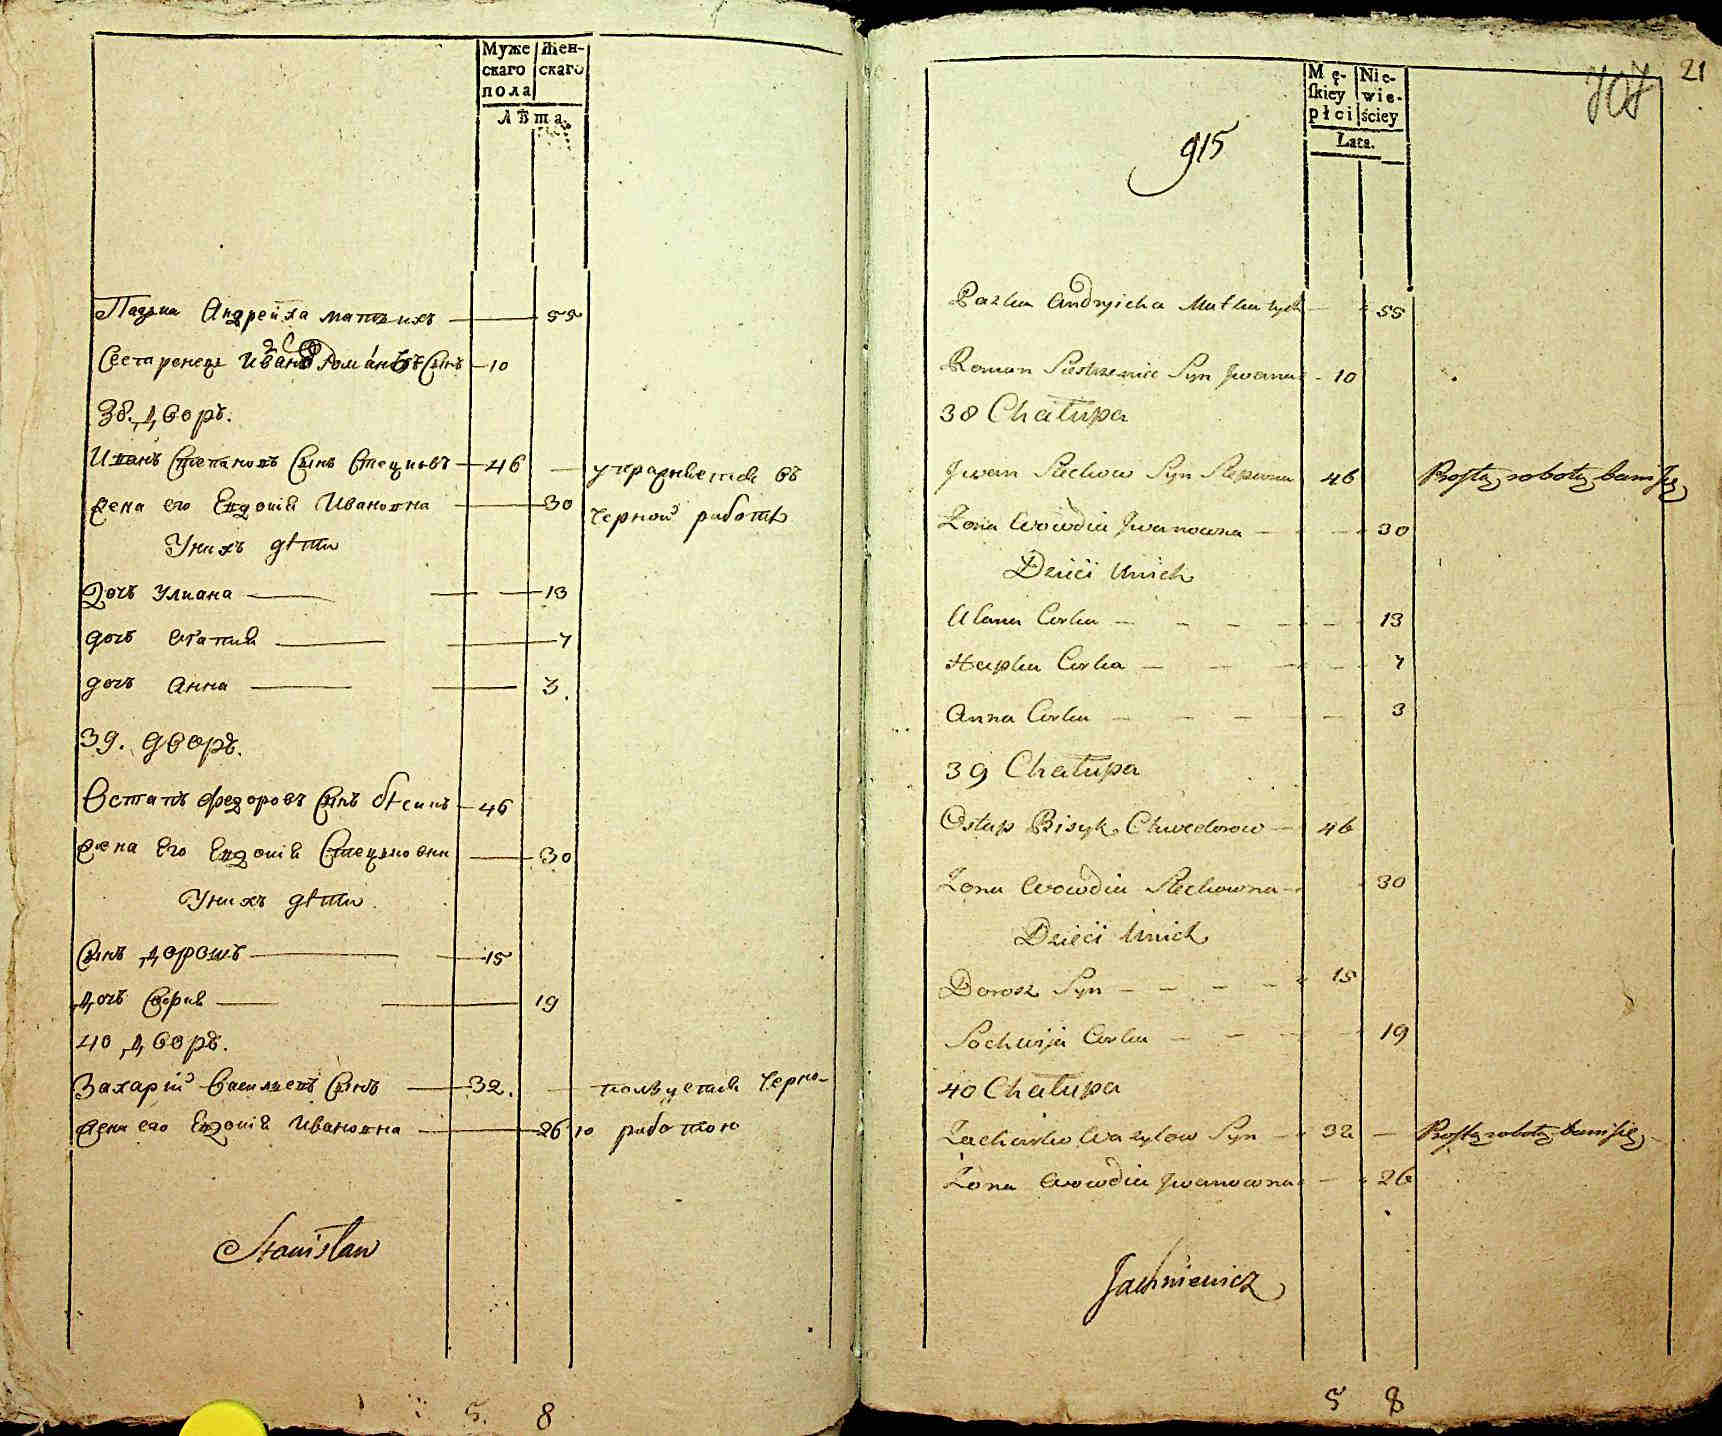 Муже Жен-
скаго скаго
пола
Лѣта.
Андрейха матъ ихъ 55
Иванъ Романъ Сынъ 10
38. дворъ.
Иванъ Степановъ Сынъ Стецювъ 46 упражняется въ
жена его Евдокія Ивановна 30 черной работѣ
У нихъ дѣти
дочь Улиана 13
дочь Агапия 7
дочь Анна 3.
39. дворъ.
Остапъ Федоровъ Сынъ 46
жена Его Евдокія Стецьковна 30
У нихъ дѣти
Сынъ дорошъ 15
дочь София 19
40 дворъ.
Захарій Васильевъ Сынъ 32. пользуется черно-
жена его Евдокія Ивановна 26 ю работою
Stanisław
5. 8
21
707
Mę- Nie-
skiey wie-
płci ściey
Lata.
915
Pazka Andryicha Matka tych 55
Roman Siestrzenic Syn Jwana 10
38 Chałupa
Jwan Stechow Syn Stepana 46 Prostą robotą bawi się
Żona Wowdia Jwanowna 30
Dzieci Unich
Ulana Corka 13
Hapka Corka 7
Anna Corka 3
39 Chałupa
Ostap Bisyk Chwedorow 46
Żona Wowdia Stechowna 30
Dzieci Unich
Dorosz Syn 15
Sochwija Corka 19
40 Chałupa
Zacharko Wazylow Syn 32 Prostą robotą bawi się
Żona Wowdia Jwanowna 26
Jachniewicz
5 8